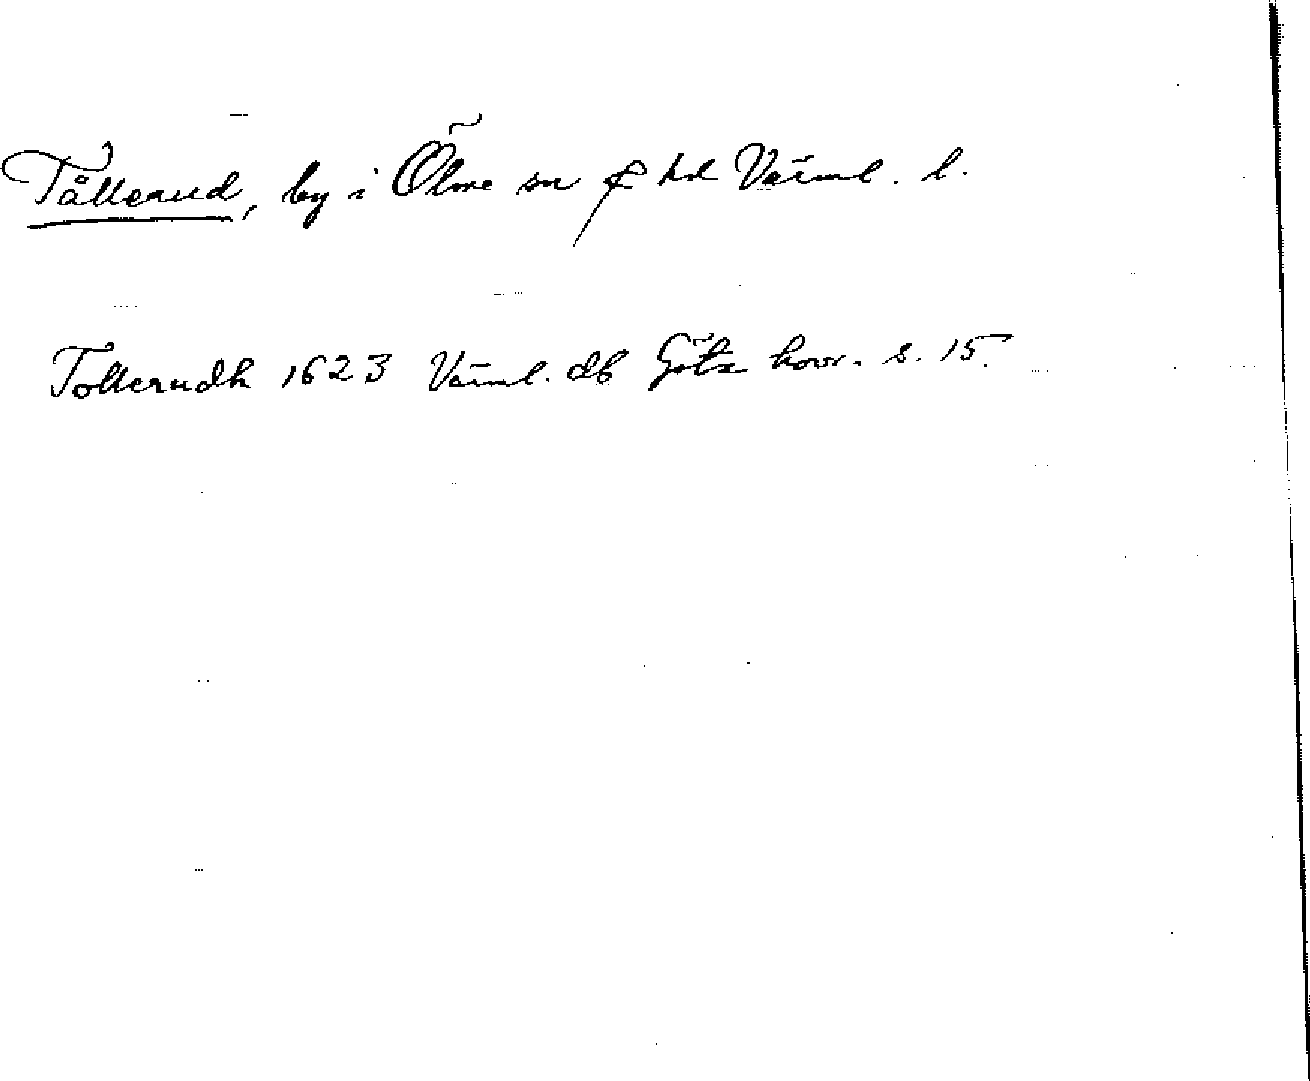 Tållerud, by i Ölme sn & hd Värml. l.
Tollerudh 1623 Värml. db Göta hovr. s. 15.